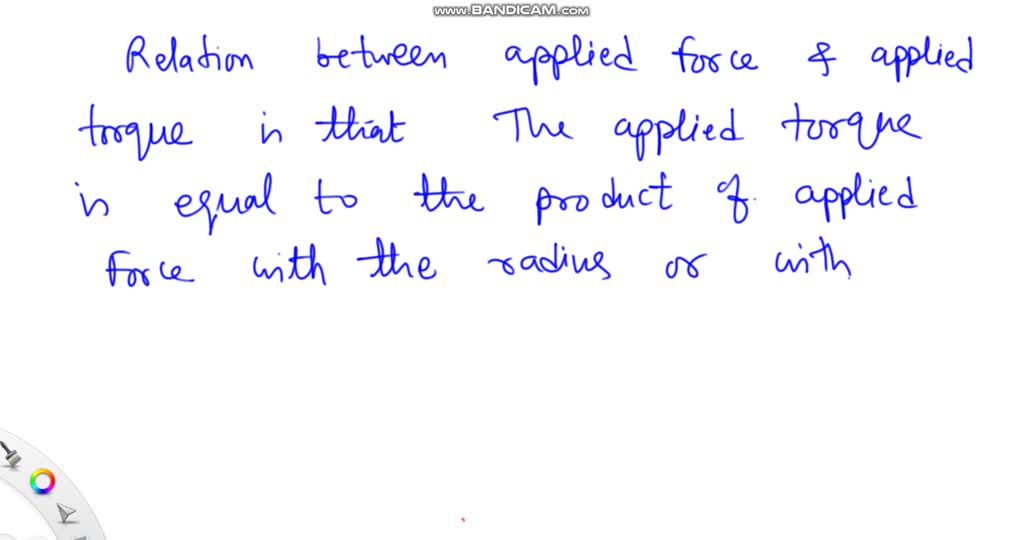 www.BANDICAM.com
Relation between applied force & applied
torque is that The applied torque
is equal to the product of applied
force with the radius or with